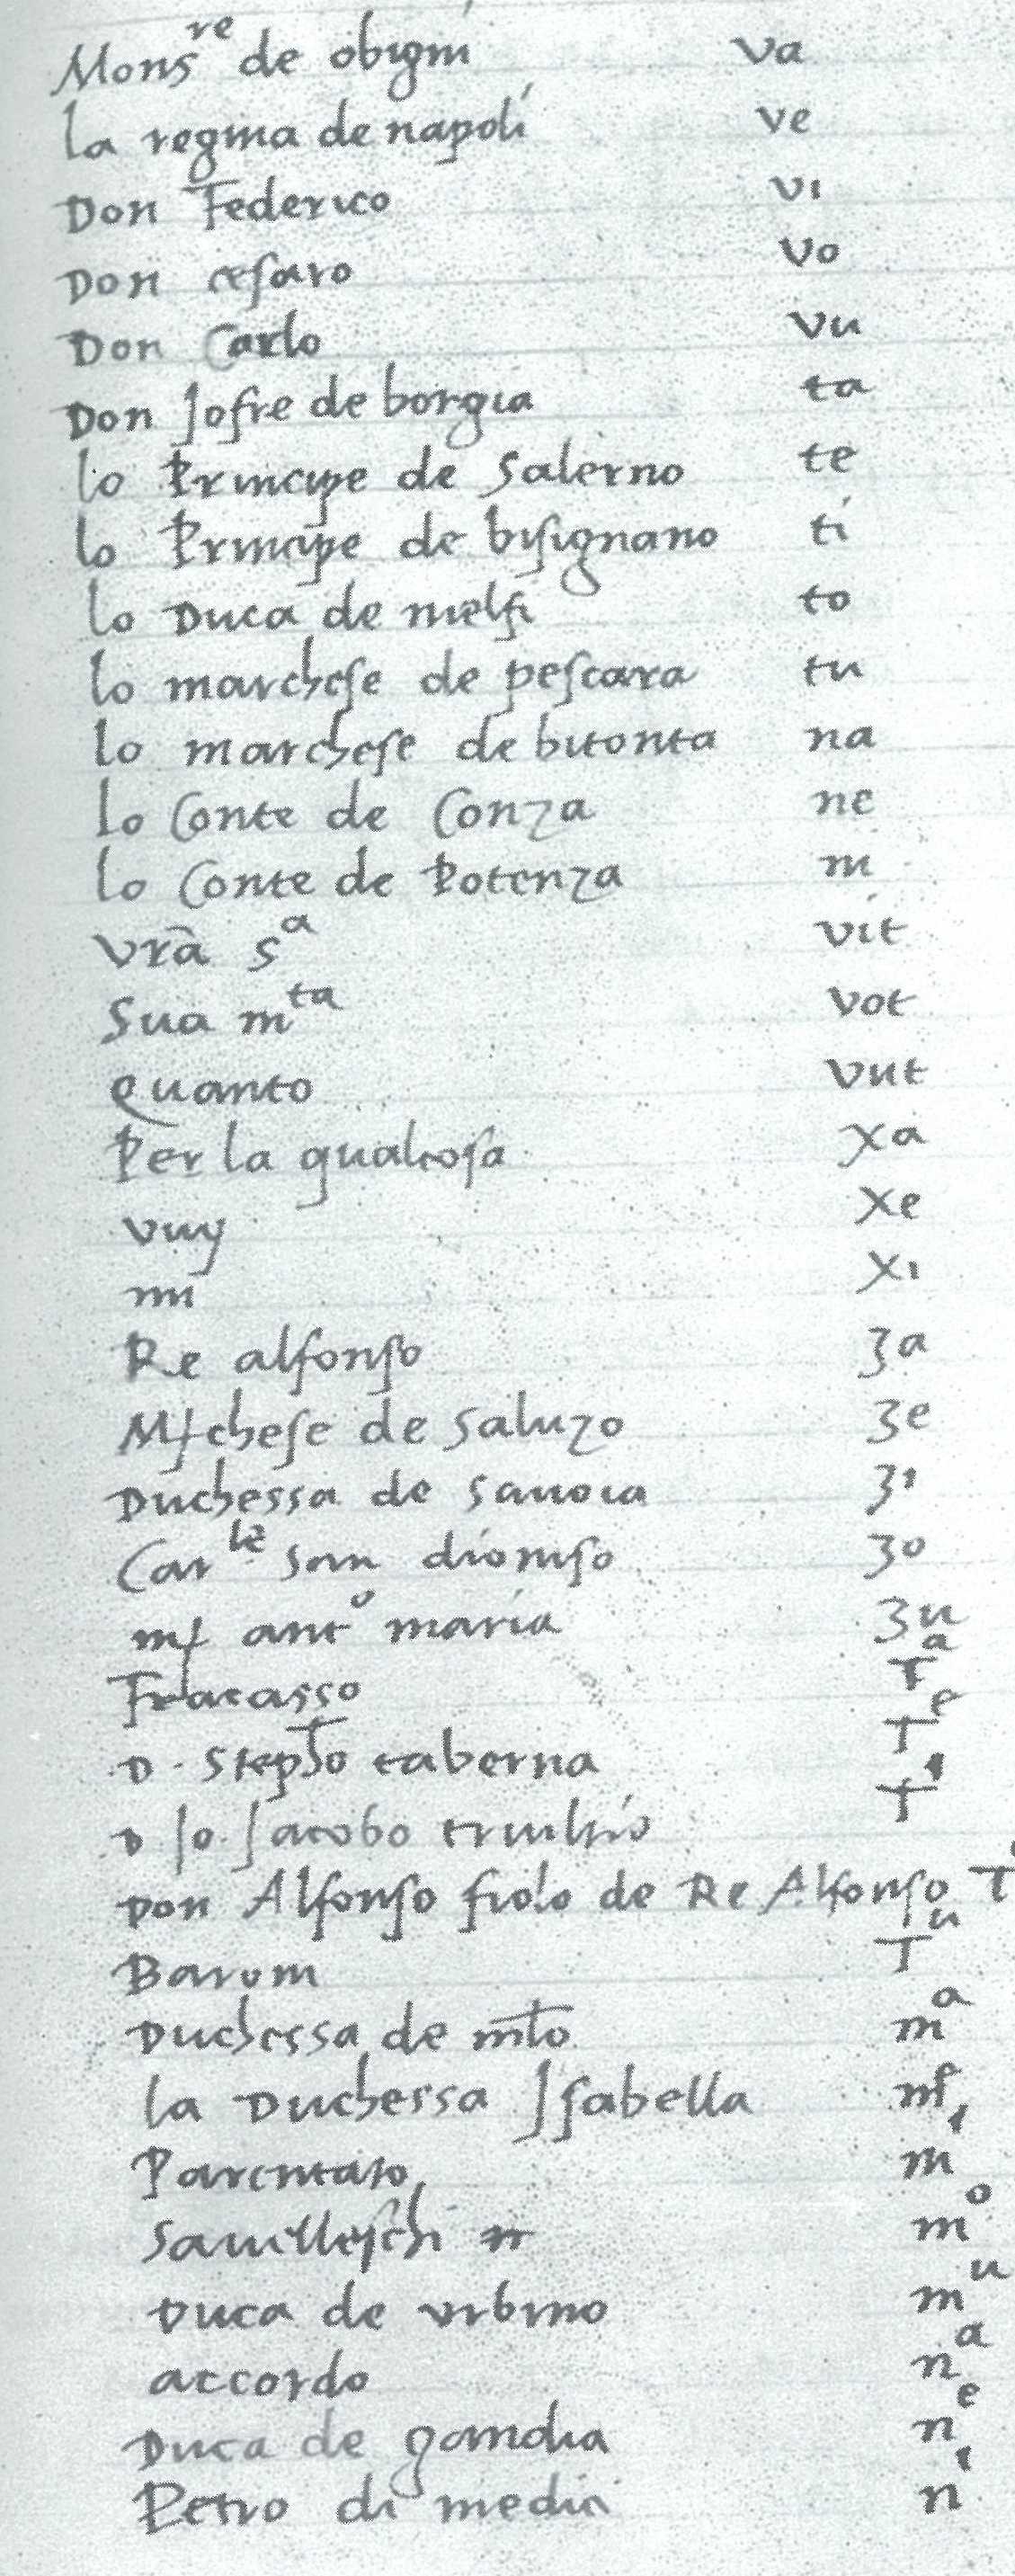 Monsre de obigni va
la regina de napoli ve
Don Federico vi
Don cesaro vo
Don Carlo vu
Don Jofre de borgia ta
lo Principe de Salerno te
lo Principe de bisignano ti
lo Duca de melfi to
lo marchese de pescara tu
lo marchese de bitonta na
lo Conte de Conza ne
lo Conte de Potenza ni
vra sa vit
Sua mta vot
quanto vut
Per la qualcosa xa
vuy xe
nui xi
Re alfonso 3a
Mchese de saluzo 3e
Duchessa de sauoia 3i
Carle san dioniso 3o
mf anto maria 3u
Fracasso Ta
D. Stepho taberna Te
D Jo. Jacobo triultio Ti
Don Alfonso fiolo de Re Alfonso To
Baroni Tu
Duchessa de mlto ma
la Duchessa Isabella me
Parentato mi
Sauelleschi mo
Duca de vrbino mu
accordo na
Duca de gandia ne
Petro di medici ni